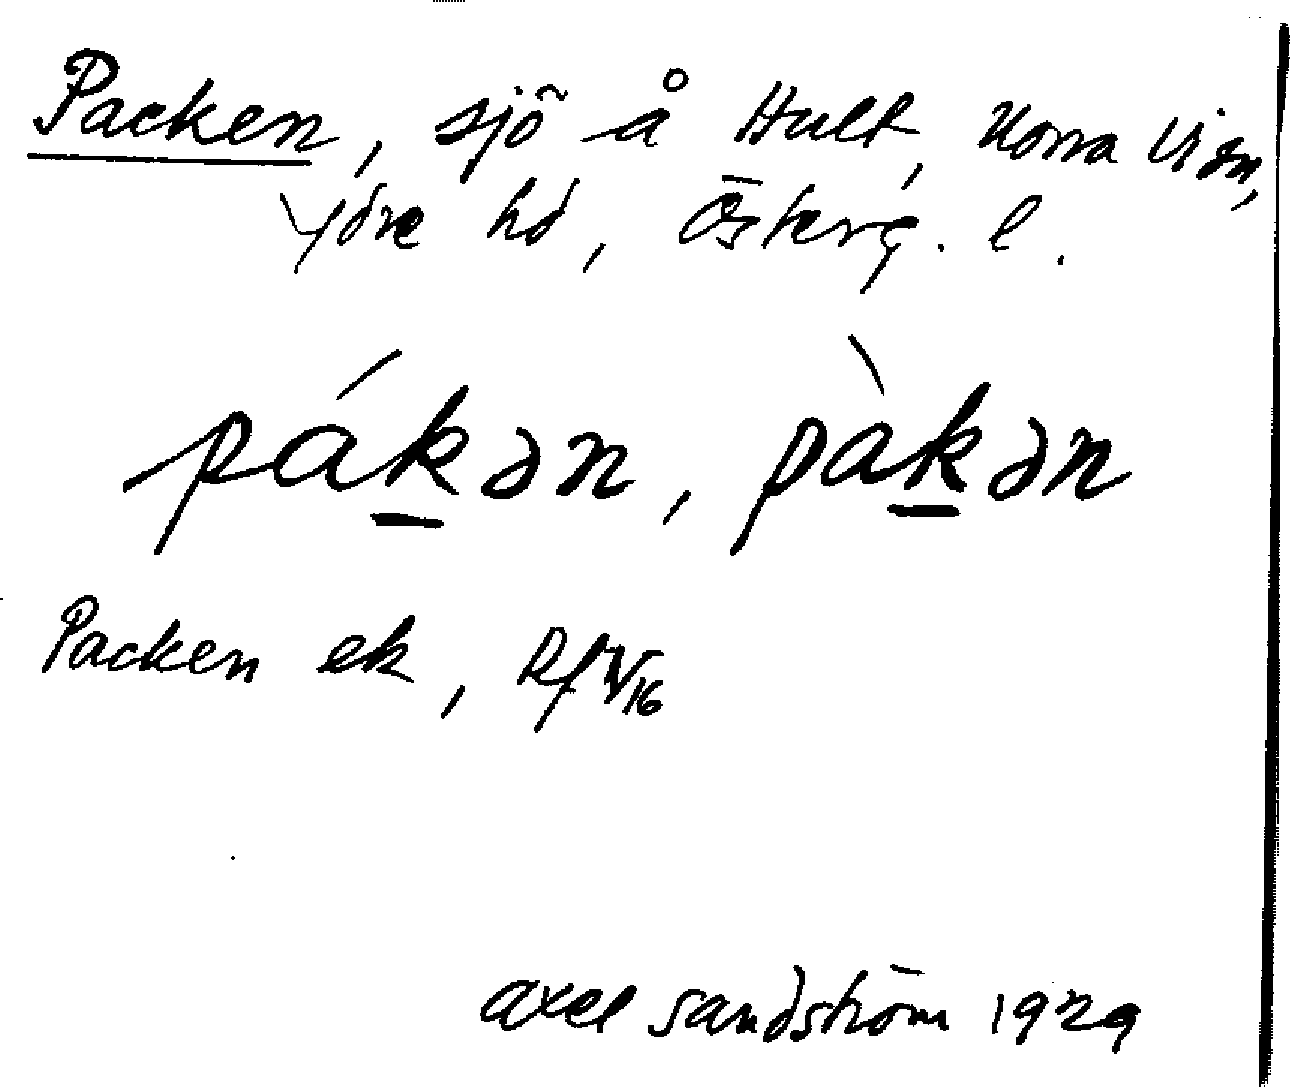 Packen, sjö å Hult, Norra Vi sn,
Ydre hd, Österg. l.
pákən, pàkən
Packen ek, Rf
Axel Sandström 1929